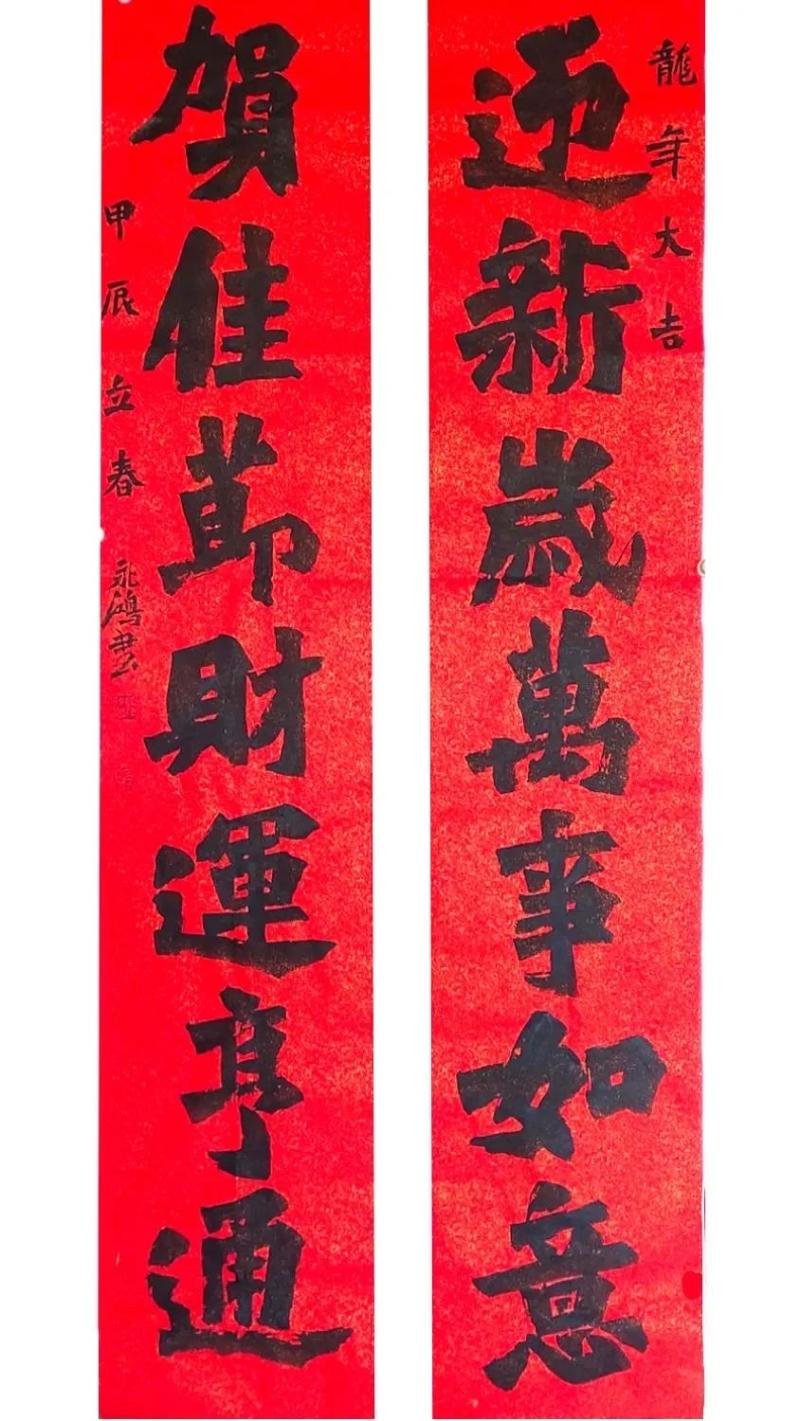 龍年大吉
迎新歲萬事如意
賀佳節財運亨通
甲辰立春
永鴻書